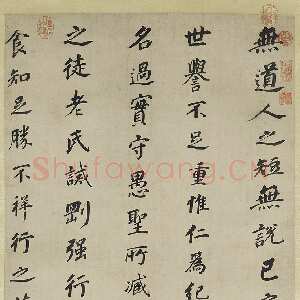 無道人之短無說己
世譽不足重惟仁為紀
名過實守愚聖所臧
之徒老氏誡剛强行
食知足勝不祥行之
Shufawang.cn